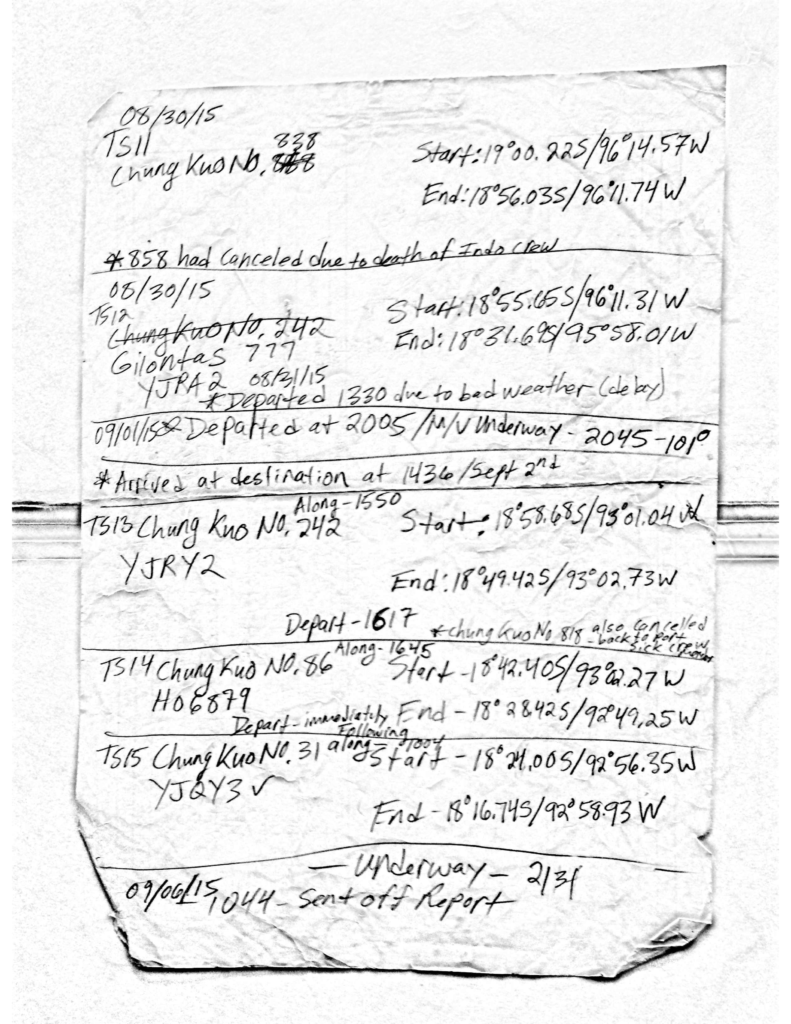 08/30/15
TS11
838
Chung Kuo No.
Start: 19°00.22S/96°14.57W
End: 18°56.03S/96°11.74W
*858 had Canceled due to death of Indo Crew
08/30/15
TS12
Chung Kuo No. 242
Gilontas 777
YJRA2
Start: 18°55.65S/96°11.31W
End: 18°31.69S/95°58.01W
08/31/15
*Departed 1330 due to bad weather (delay)
09/01/15 Departed at 2005/M/V Underway - 2045-101°
*Arrived at destination at 1436/Sept 2nd
Along-1550
TS13 Chung Kuo No. 242
YJRY2
Start: 18°58.68S/93°01.04W
End: 18°49.42S/93°02.73W
Depart-1617
*Chung Kuo No. 818 also Cancelled
-back to port
Sick Crew
Along-1645
TS14 Chung Kuo No. 86
HO6879
Start - 18°42.40S/93°02.27W
End - 18°28.42S/92°49.25W
Depart-immediately
Following
TS15 Chung Kuo No. 31 along
YJQY3 ✓
Start - 18°21.00S/92°56.35W
End - 18°16.74S/92°58.93W
— Underway — 2131
09/06/15 1044 - Sent off Report